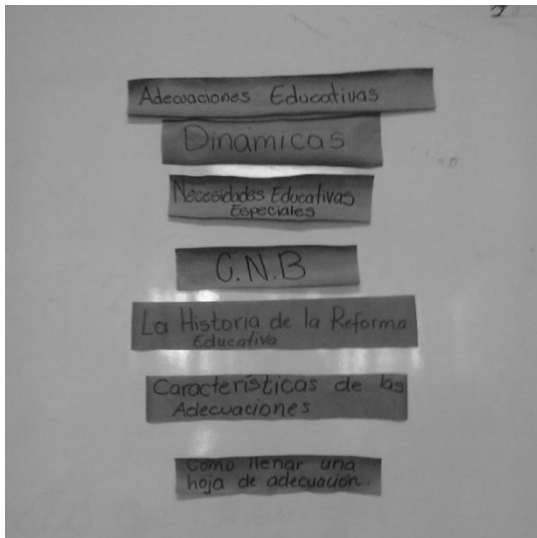 Adecuaciones Educativas
Dinámicas
Necesidades Educativas
Especiales
C.N.B
La Historia de la Reforma
Educativa
Características de las
Adecuaciones
Como llenar una
hoja de adecuación.